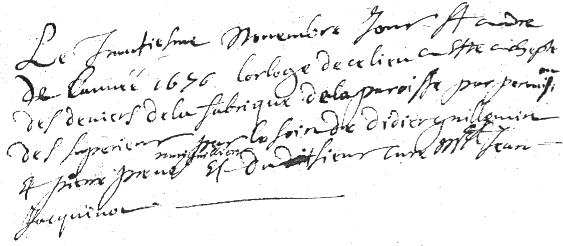 Le trentiesme Novembre Jour St andre
de Lannéé 1676 lorloge de ce lieu a estte achepte
des deniers de la fabrique de la paroisse par permission
des superieur par le soin de didier guillemin
Et pierre preue marguilliers Et du dit sieur cure Mre Jean
Jacquinot